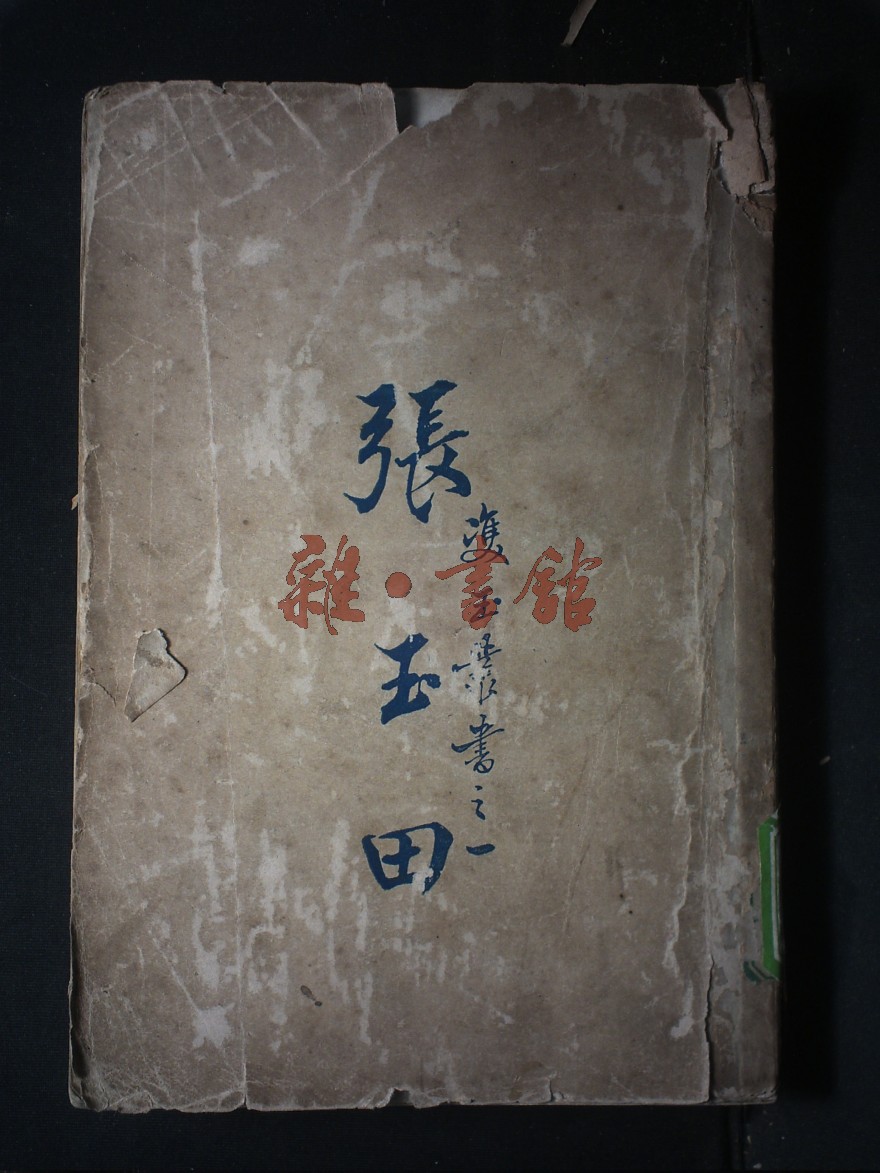 雙玉叢書之一
張玉田
雜·書館